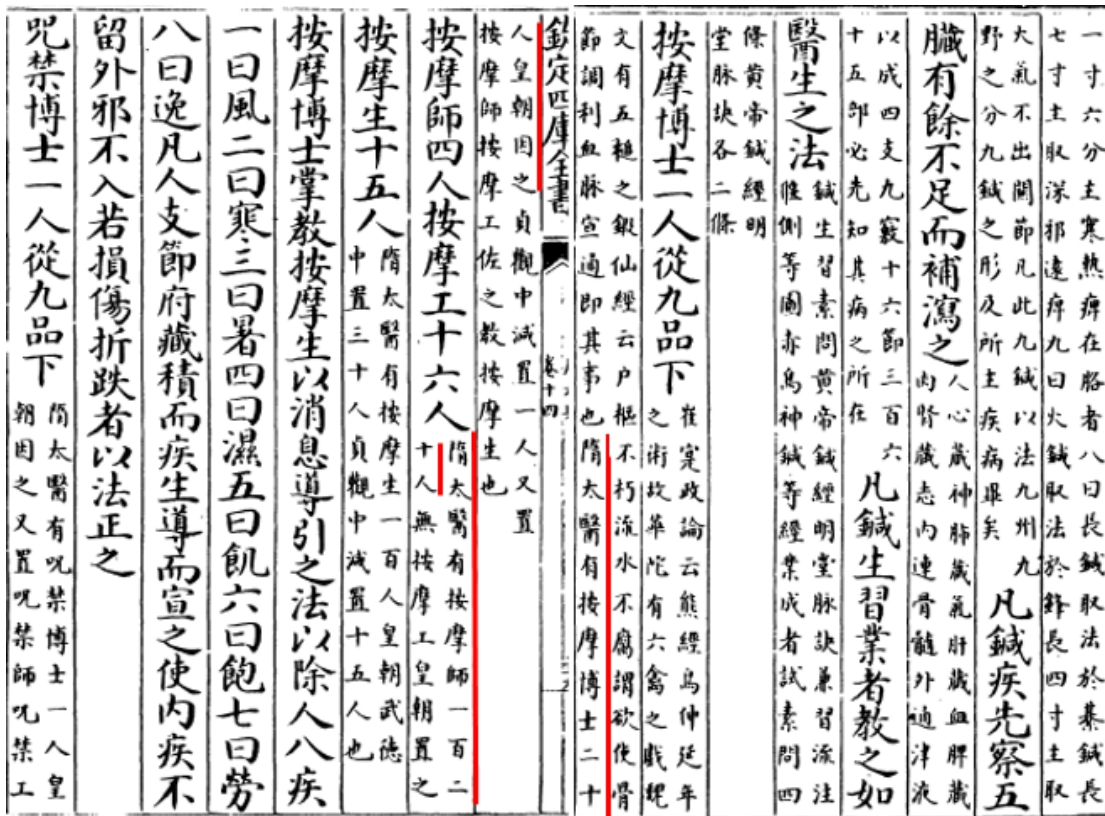 一寸六分主寒熱痹在胳者八曰長鍼取法於綦鍼長
七寸主取深邪遠痹九曰火鍼取法於鋒長四寸主取
大氣不出關節凡此九鍼以法九州九
野之分九鍼之形及所主疾病畢矣
凡鍼疾先察五
臟有餘不足而補瀉之
人心藏神肺藏氣肝藏血脾藏
肉腎藏志内連骨髓外通津液
以成四支九竅十六節三百六
十五部必先知其病之所在
凡鍼生習業者教之如
醫生之法
鍼生習素問黃帝鍼經明堂脉訣兼習流注
偃側等圖赤烏神鍼等經業成者試素問四
條黃帝鍼經明
堂脉訣各二條
按摩博士一人從九品下
崔寔政論云熊經鳥伸延年
之術故華陀有六禽之戲魏
文有五搥之鍛仙經云户樞不朽流水不腐謂欲使骨
節調利血脉宣通即其事也隋太醫有按摩博士二十
欽定四庫全書
卷十四
人皇朝因之貞觀中減置一人又置
按摩師按摩工佐之教按摩生也
按摩師四人按摩工十六人
隋太醫有按摩師一百二
十人無按摩工皇朝置之
按摩生十五人
隋太醫有按摩生一百人皇朝武德
中置三十人貞觀中減置十五人也
按摩博士掌教按摩生以消息導引之法以除人八疾
一曰風二曰寒三曰暑四曰濕五曰飢六曰飽七曰勞
八曰逸凡人支節府藏積而疾生導而宣之使内疾不
留外邪不入若損傷折跌者以法正之
咒禁博士一人從九品下
隋太醫有咒禁博士一人皇
朝因之又置咒禁師咒禁工